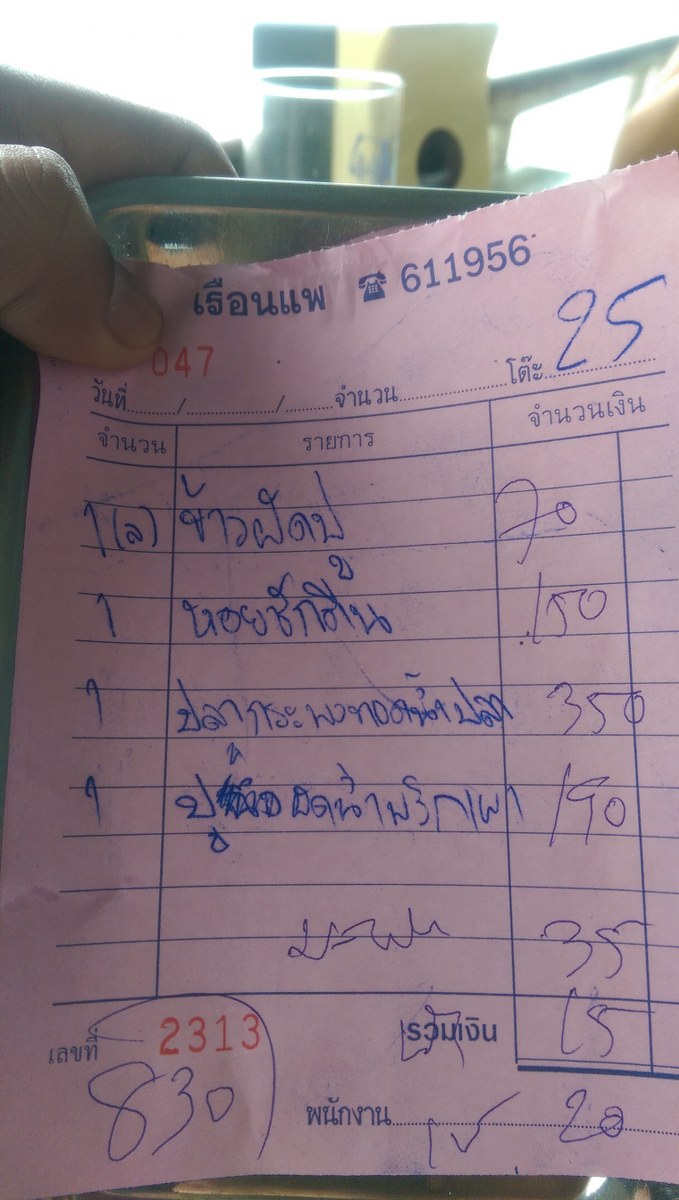 เรือนแพ ☎ 611956
047
วันที่......../............/........จำนวน..................โต๊ะ 25
จำนวน รายการ จำนวนเงิน
1(ล) ข้าวผัดปู 70
1 หอยชักตีน 150
1 ปลากระพงทอดน้ำปลา 350
1 ปู ผัดน้ำพริกเผา 190
35
รวมเงิน 15
เลขที่ 2313
830
พนักงาน 20